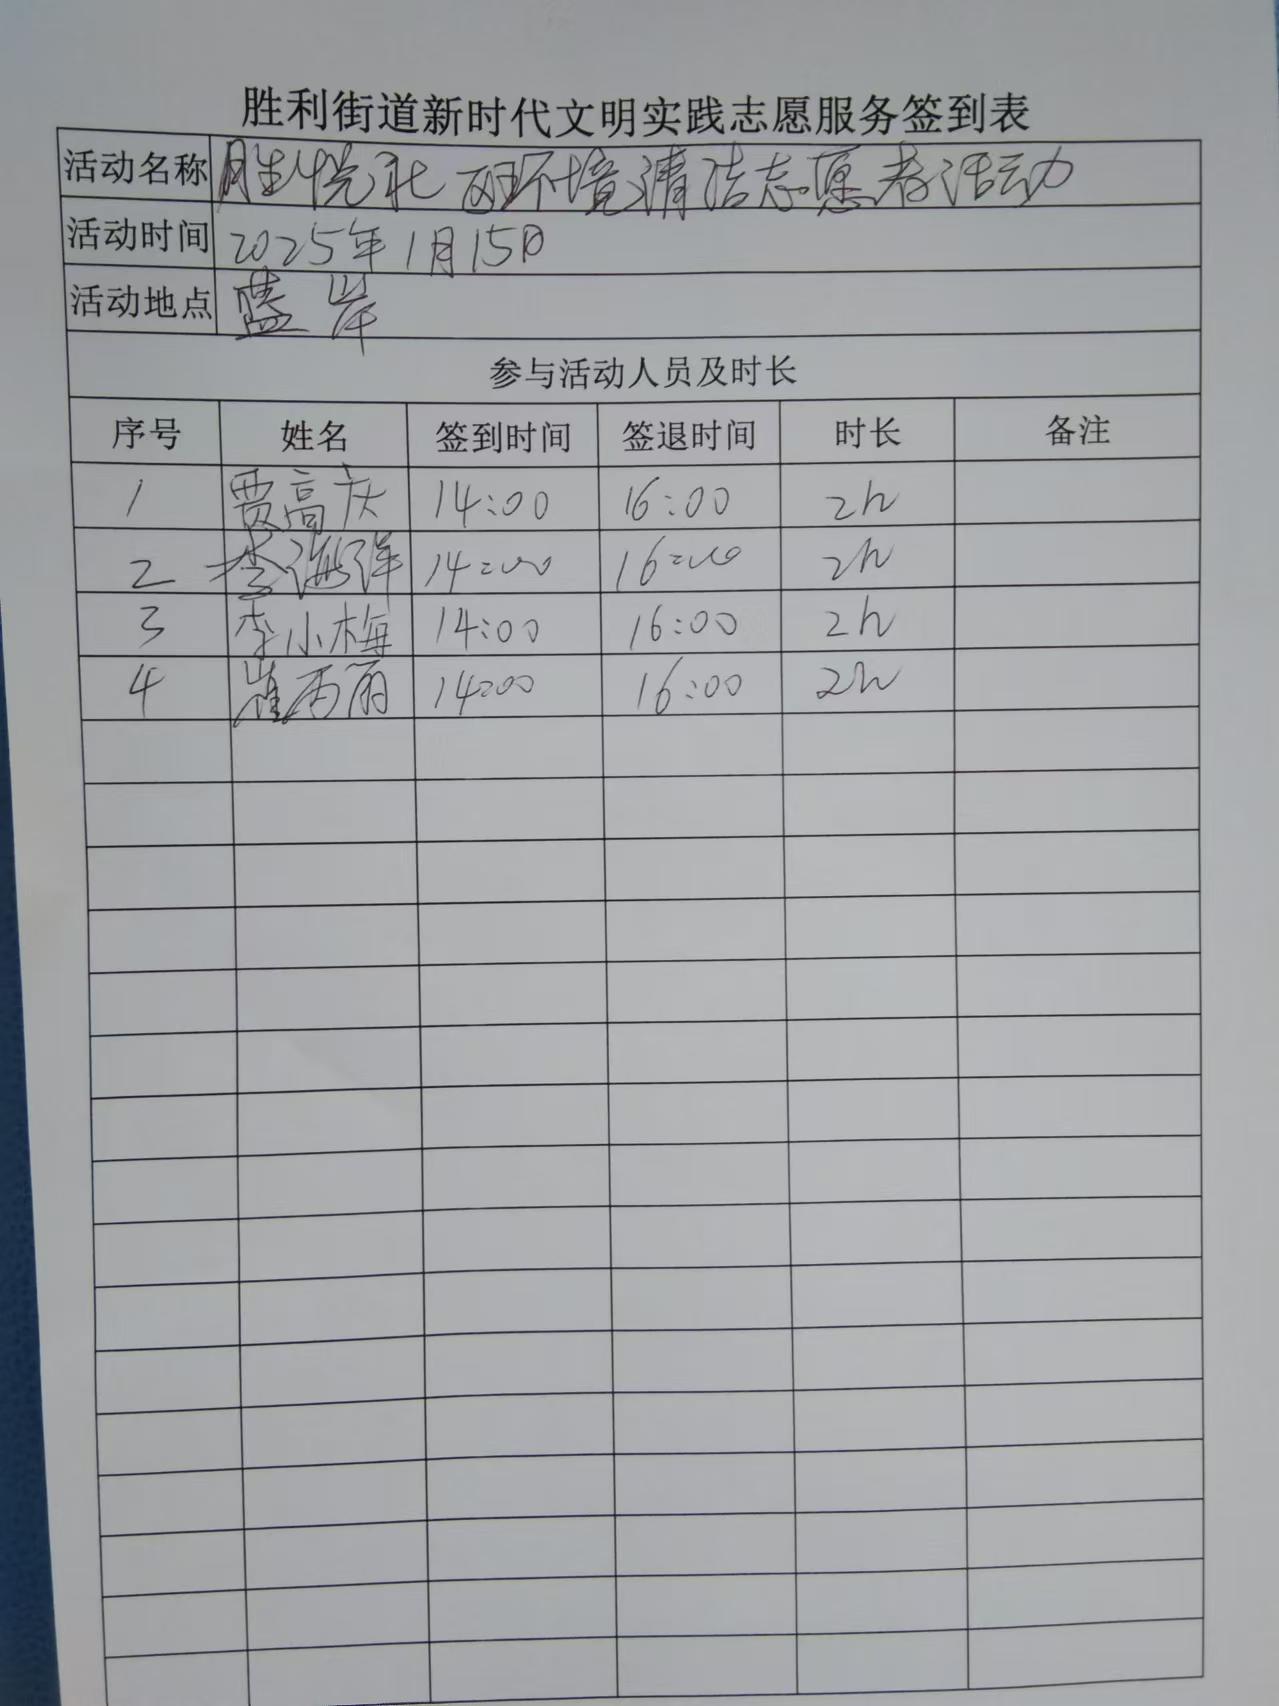 胜利街道新时代文明实践志愿服务签到表
活动名称 胜悦社区环境清洁志愿者活动
活动时间 2025年1月15日
活动地点 蓝岸
参与活动人员及时长
序号 姓名 签到时间 签退时间 时长 备注
1 贾高庆 14:00 16:00 2h
2 李海洋 14:00 16:00 2h
3 李小梅 14:00 16:00 2h
4 崔丙丽 14:00 16:00 2h